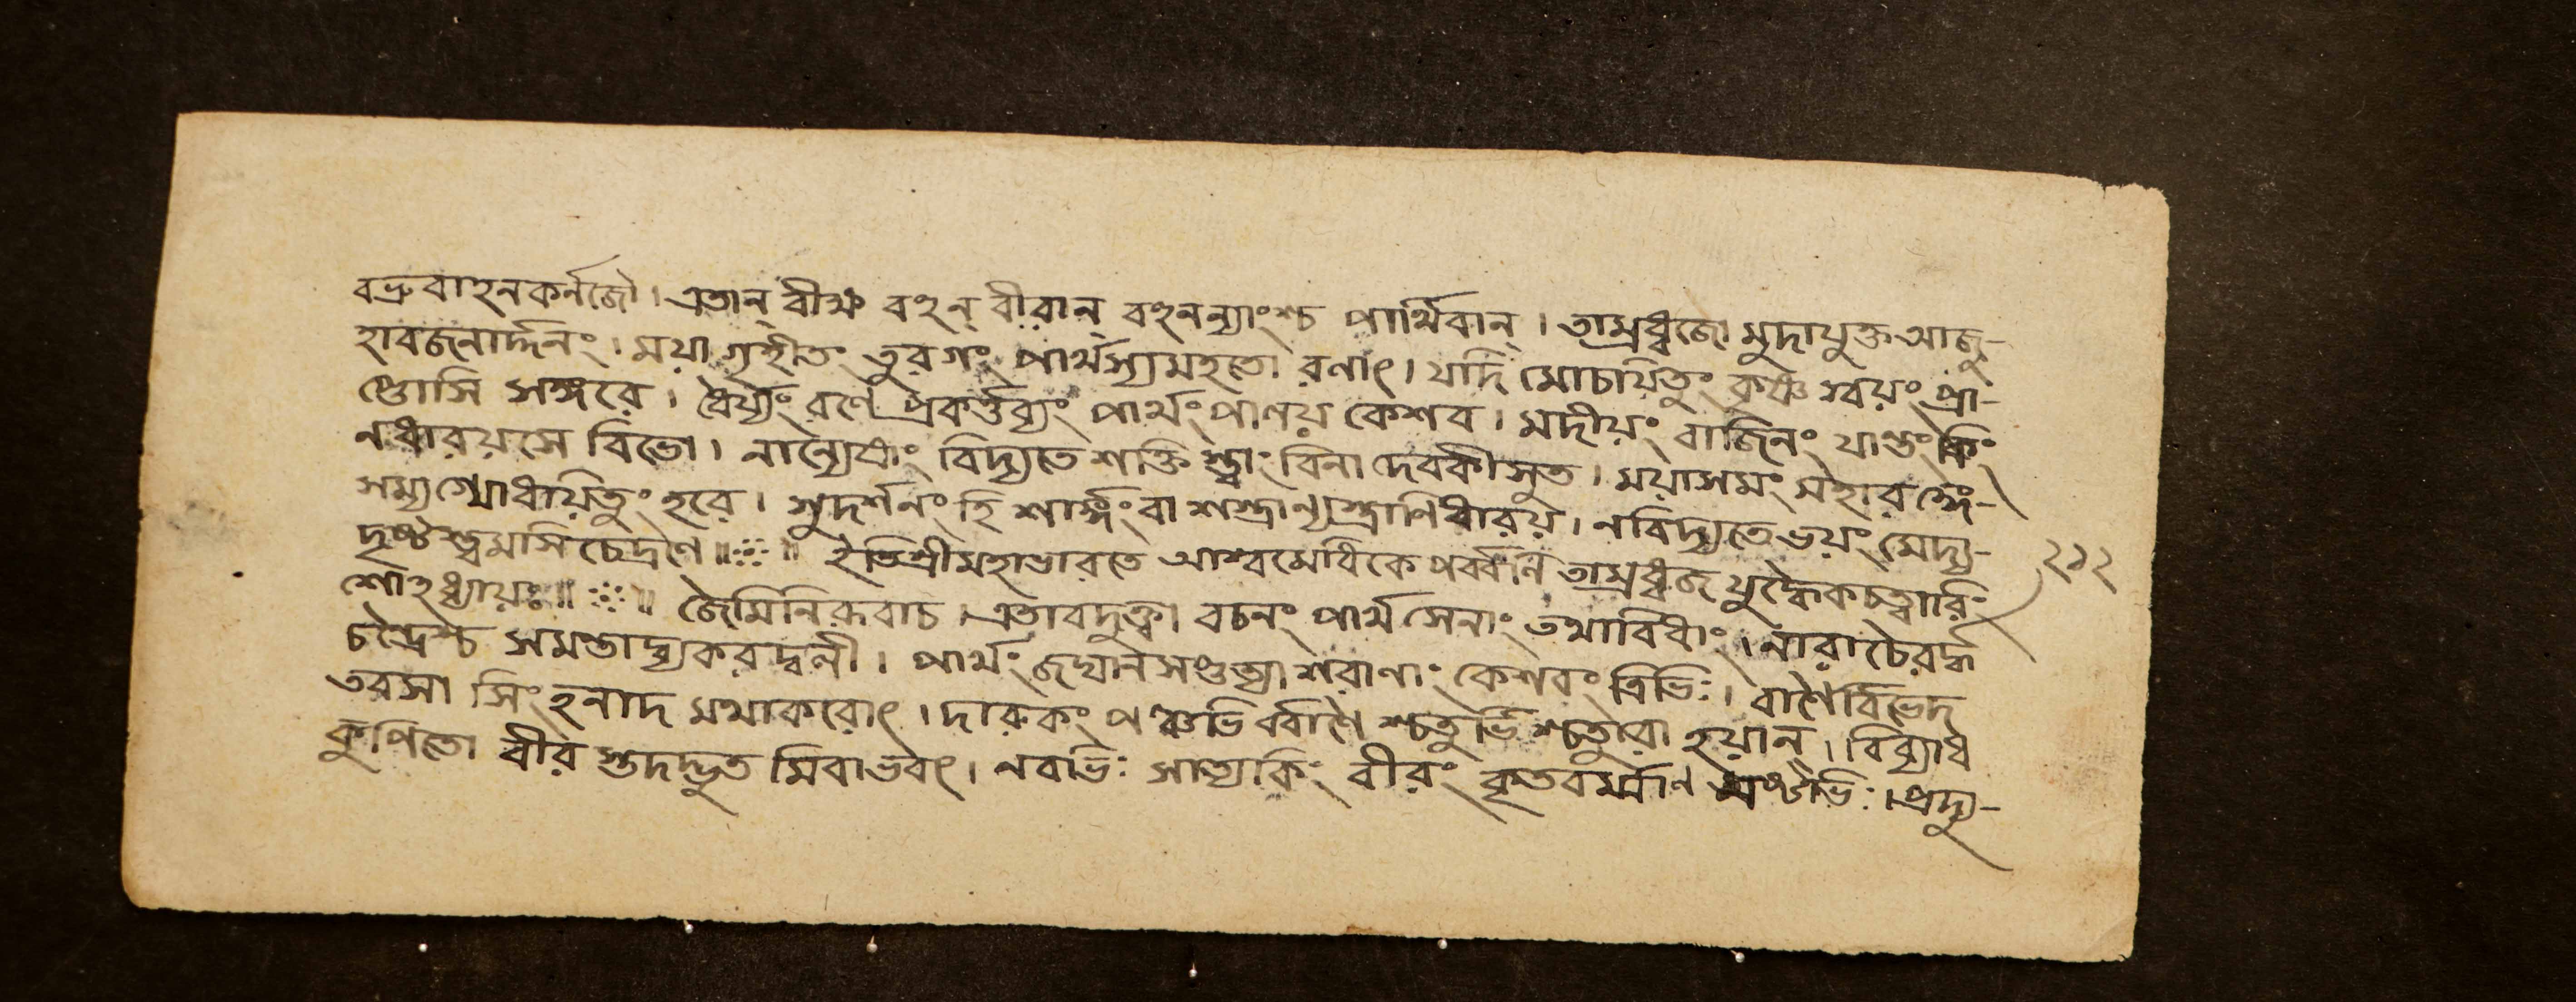 বভ্রুবাহনকর্নজৌ। এতান্ বীক্ষ বহূন্ বীরান্ বহূনন্যাংশ্চ পার্থিবান্। তাম্রধ্বজো মুদাযুক্ত আজু-
হাবজনার্দ্দনং। ময়া গৃহীতং তুরগং পার্থস্যমহতো রণাৎ। যদি মোচয়িতুং কৃষ্ণ স্বয়ং প্রা-
প্তোসি সঙ্গরে। ধৈর্য্যং রণে প্রকর্ত্তব্যং পার্থং পাণয় কেশব। মদীয়ং বাজিনং যান্তং কিং
নধারয়সে বিভো। নান্যেষাং বিদ্যতে শক্তি স্ত্বাং বিনা দেবকীসুত। ময়াসমং মহারঙ্গে-
সম্যগ্যোধয়িতুং হরে। সুদর্শনং হি শার্ঙ্গং বা শস্ত্রান্যস্ত্রাণিধারয়। নবিদ্যতে ভয়ং মেদ্য-
দৃষ্টস্ত্বমসি চেদ্রণে॥ ॥ ইতিশ্রীমহাভারতে আশ্বমেধিকে পর্ব্বণি তাম্রধ্বজ যুদ্ধৈকচত্বারিং
২১২
শোঽধ্যায়ঃ॥ ॥ জৈমিনিরুবাচ। এতাবদুক্ত্বা বচনং পার্থ সেনাং তথাবিধাং। নারাচৈরর্দ্ধ
চন্দ্রৈশ্চ সমন্তাদ্ব্যকরদ্বলী। পার্থং জঘান সপ্তত্যা শরাণাং কেশবং ত্রিভিঃ। বাণৈর্বিভেদ
তরসা সিংহনাদ মথাকরোৎ। দারুকং পঞ্চভি র্ব্বাণৈ শ্চতুর্ভি শ্চতুরো হয়ান্। বিব্যাধ
কুপিতো বীর স্তদদ্ভুত মিবাভবৎ। নবভিঃ সাত্যকিং বীরং কৃতবর্ম্মাণ মষ্টভিঃ। প্রদ্যু-